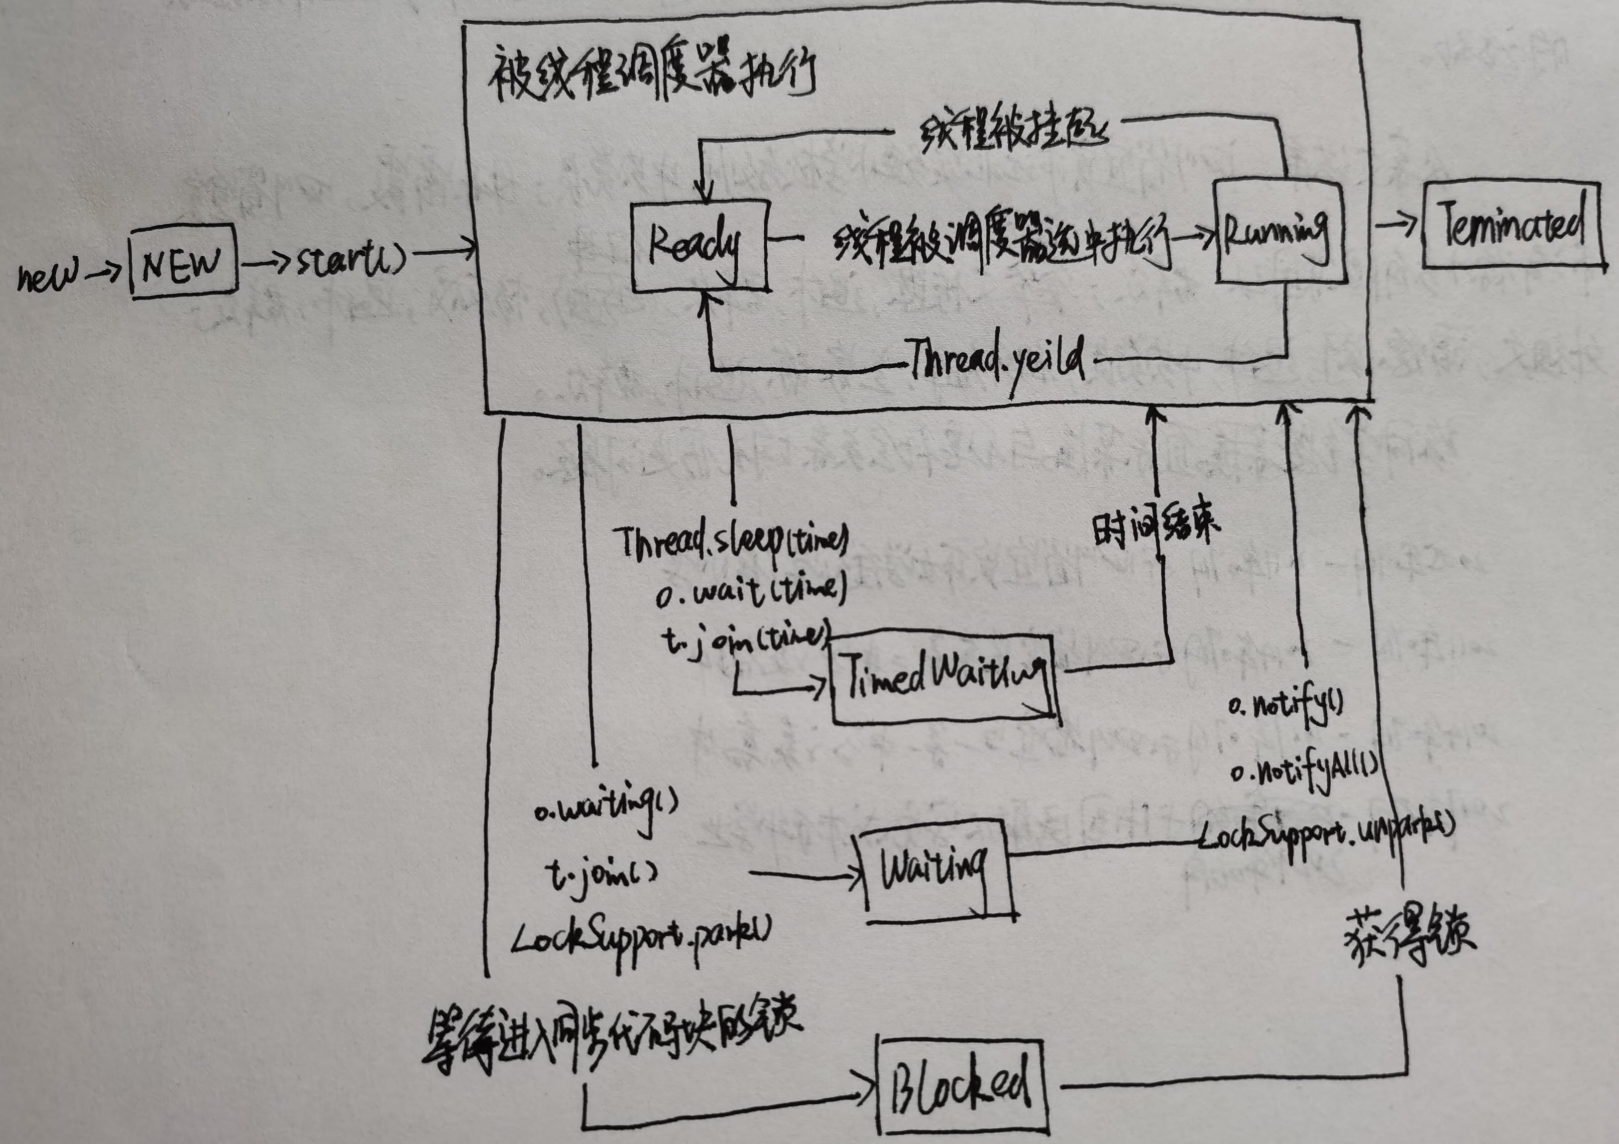 被线程调度器执行
线程被挂起
new
NEW
start()
Ready
线程被调度器选中执行
Running
Teminated
Thread.yeild
Thread.sleep(time)
o.wait(time)
t.join(time)
TimedWaiting
时间结束
o.notify()
o.notifyAll()
LockSupport.unpark()
o.waiting()
t.join()
LockSupport.park()
Waiting
获得锁
等待进入同步代码块的锁
Blocked